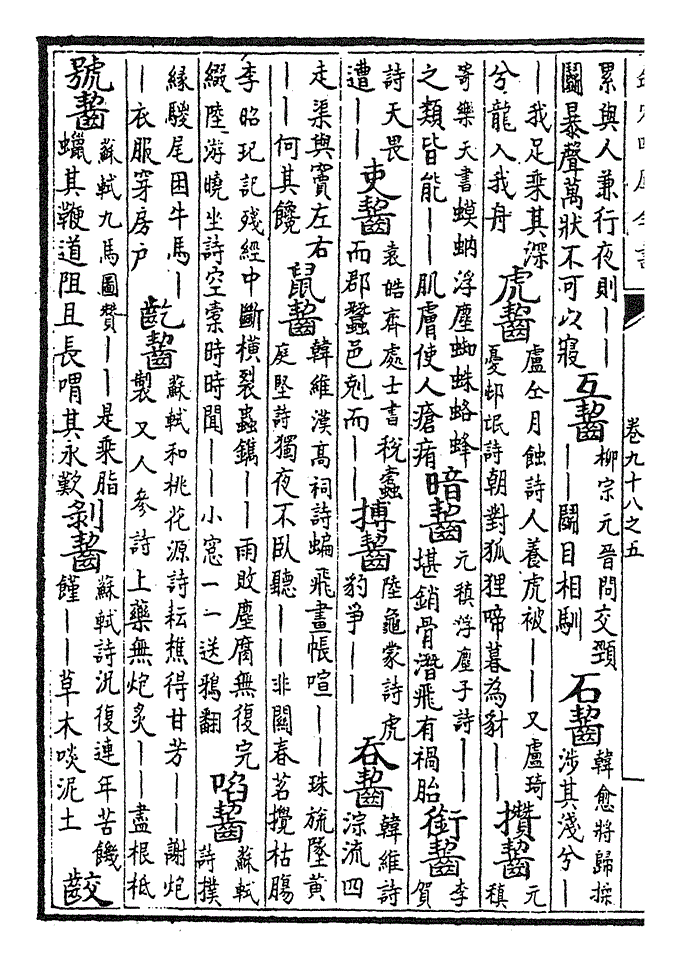 卷九十八之五
累與人兼行夜則｜｜鬬暴聲萬狀不可以寢 互齧 柳宗元晉問交頸｜｜鬬目相馴 石齧 韓愈將歸操涉其淺兮｜
｜我足乘其深兮龍入我舟 虎齧 盧仝月蝕詩人養虎被｜｜又盧琦憂邨氓詩朝對狐狸啼暮為豺｜｜ 攢齧 元稹
寄樂天書蟆蚋浮塵蜘蛛蛒蜂之類皆能｜｜肌膚使人瘡痏 暗齧 元稹浮塵子詩｜｜堪銷骨潛飛有禍胎 銜齧 李賀
詩天畏遭｜｜ 吏齧 袁皓齊處士書稅蠹而郡蠶邑剋而｜｜ 搏齧 陸龜蒙詩虎豹爭｜｜ 吞齧 韓維詩淙流四
走渠與竇左右｜｜何其饞 鼠齧 韓維漢高祠詩蝙飛畫帳喧｜｜珠旒墜黃庭堅詩獨夜不臥聽｜｜非關春茗攪枯腸
李昭玘記殘經中斷橫裂蟲鐫｜｜雨敗塵腐無復完綴陸游曉坐詩空橐時時聞｜｜小窓一一送鴉翻 啗齧 蘇軾詩撲
緣騣尾困牛馬｜｜衣服穿房戶 齕齧 蘇軾和桃花源詩耘樵得甘芳｜｜謝炮製又人參詩上藥無炮炙｜｜盡根柢
號齧 蘇軾九馬圖贊｜｜是乘脂蠟其鞭道阻且長喟其永歎 剝齧 蘇軾詩況復連年苦饑饉｜｜草木啖泥土 齩